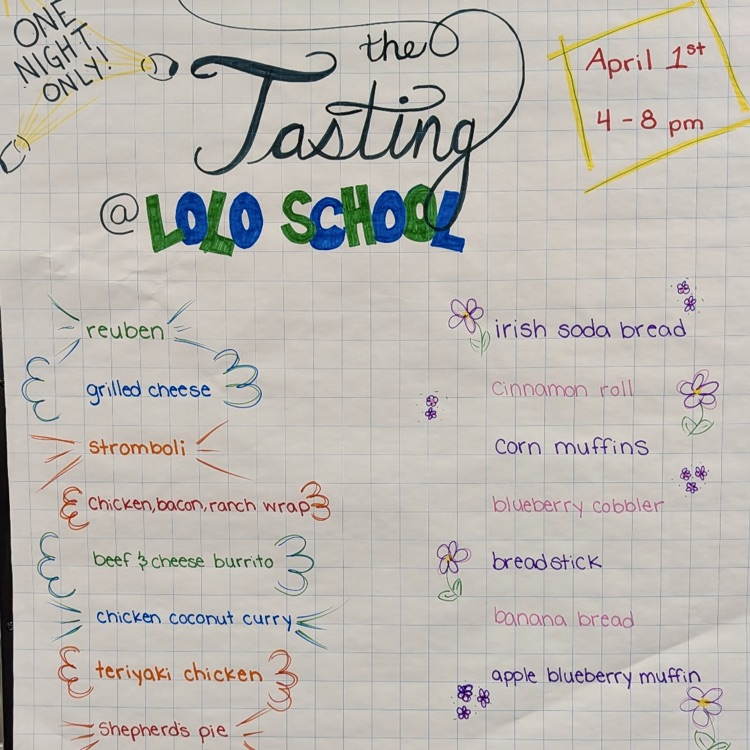 ONE
NIGHT
ONLY!
the
Tasting
@ LOLO SCHOOL
April 1st
4-8 pm
reuben
grilled cheese
stromboli
chicken, bacon, ranch wrap
beef & cheese burrito
chicken coconut curry
teriyaki chicken
Shepherd's pie
irish soda bread
cinnamon roll
corn muffins
blueberry cobbler
breadstick
banana bread
apple blueberry muffin